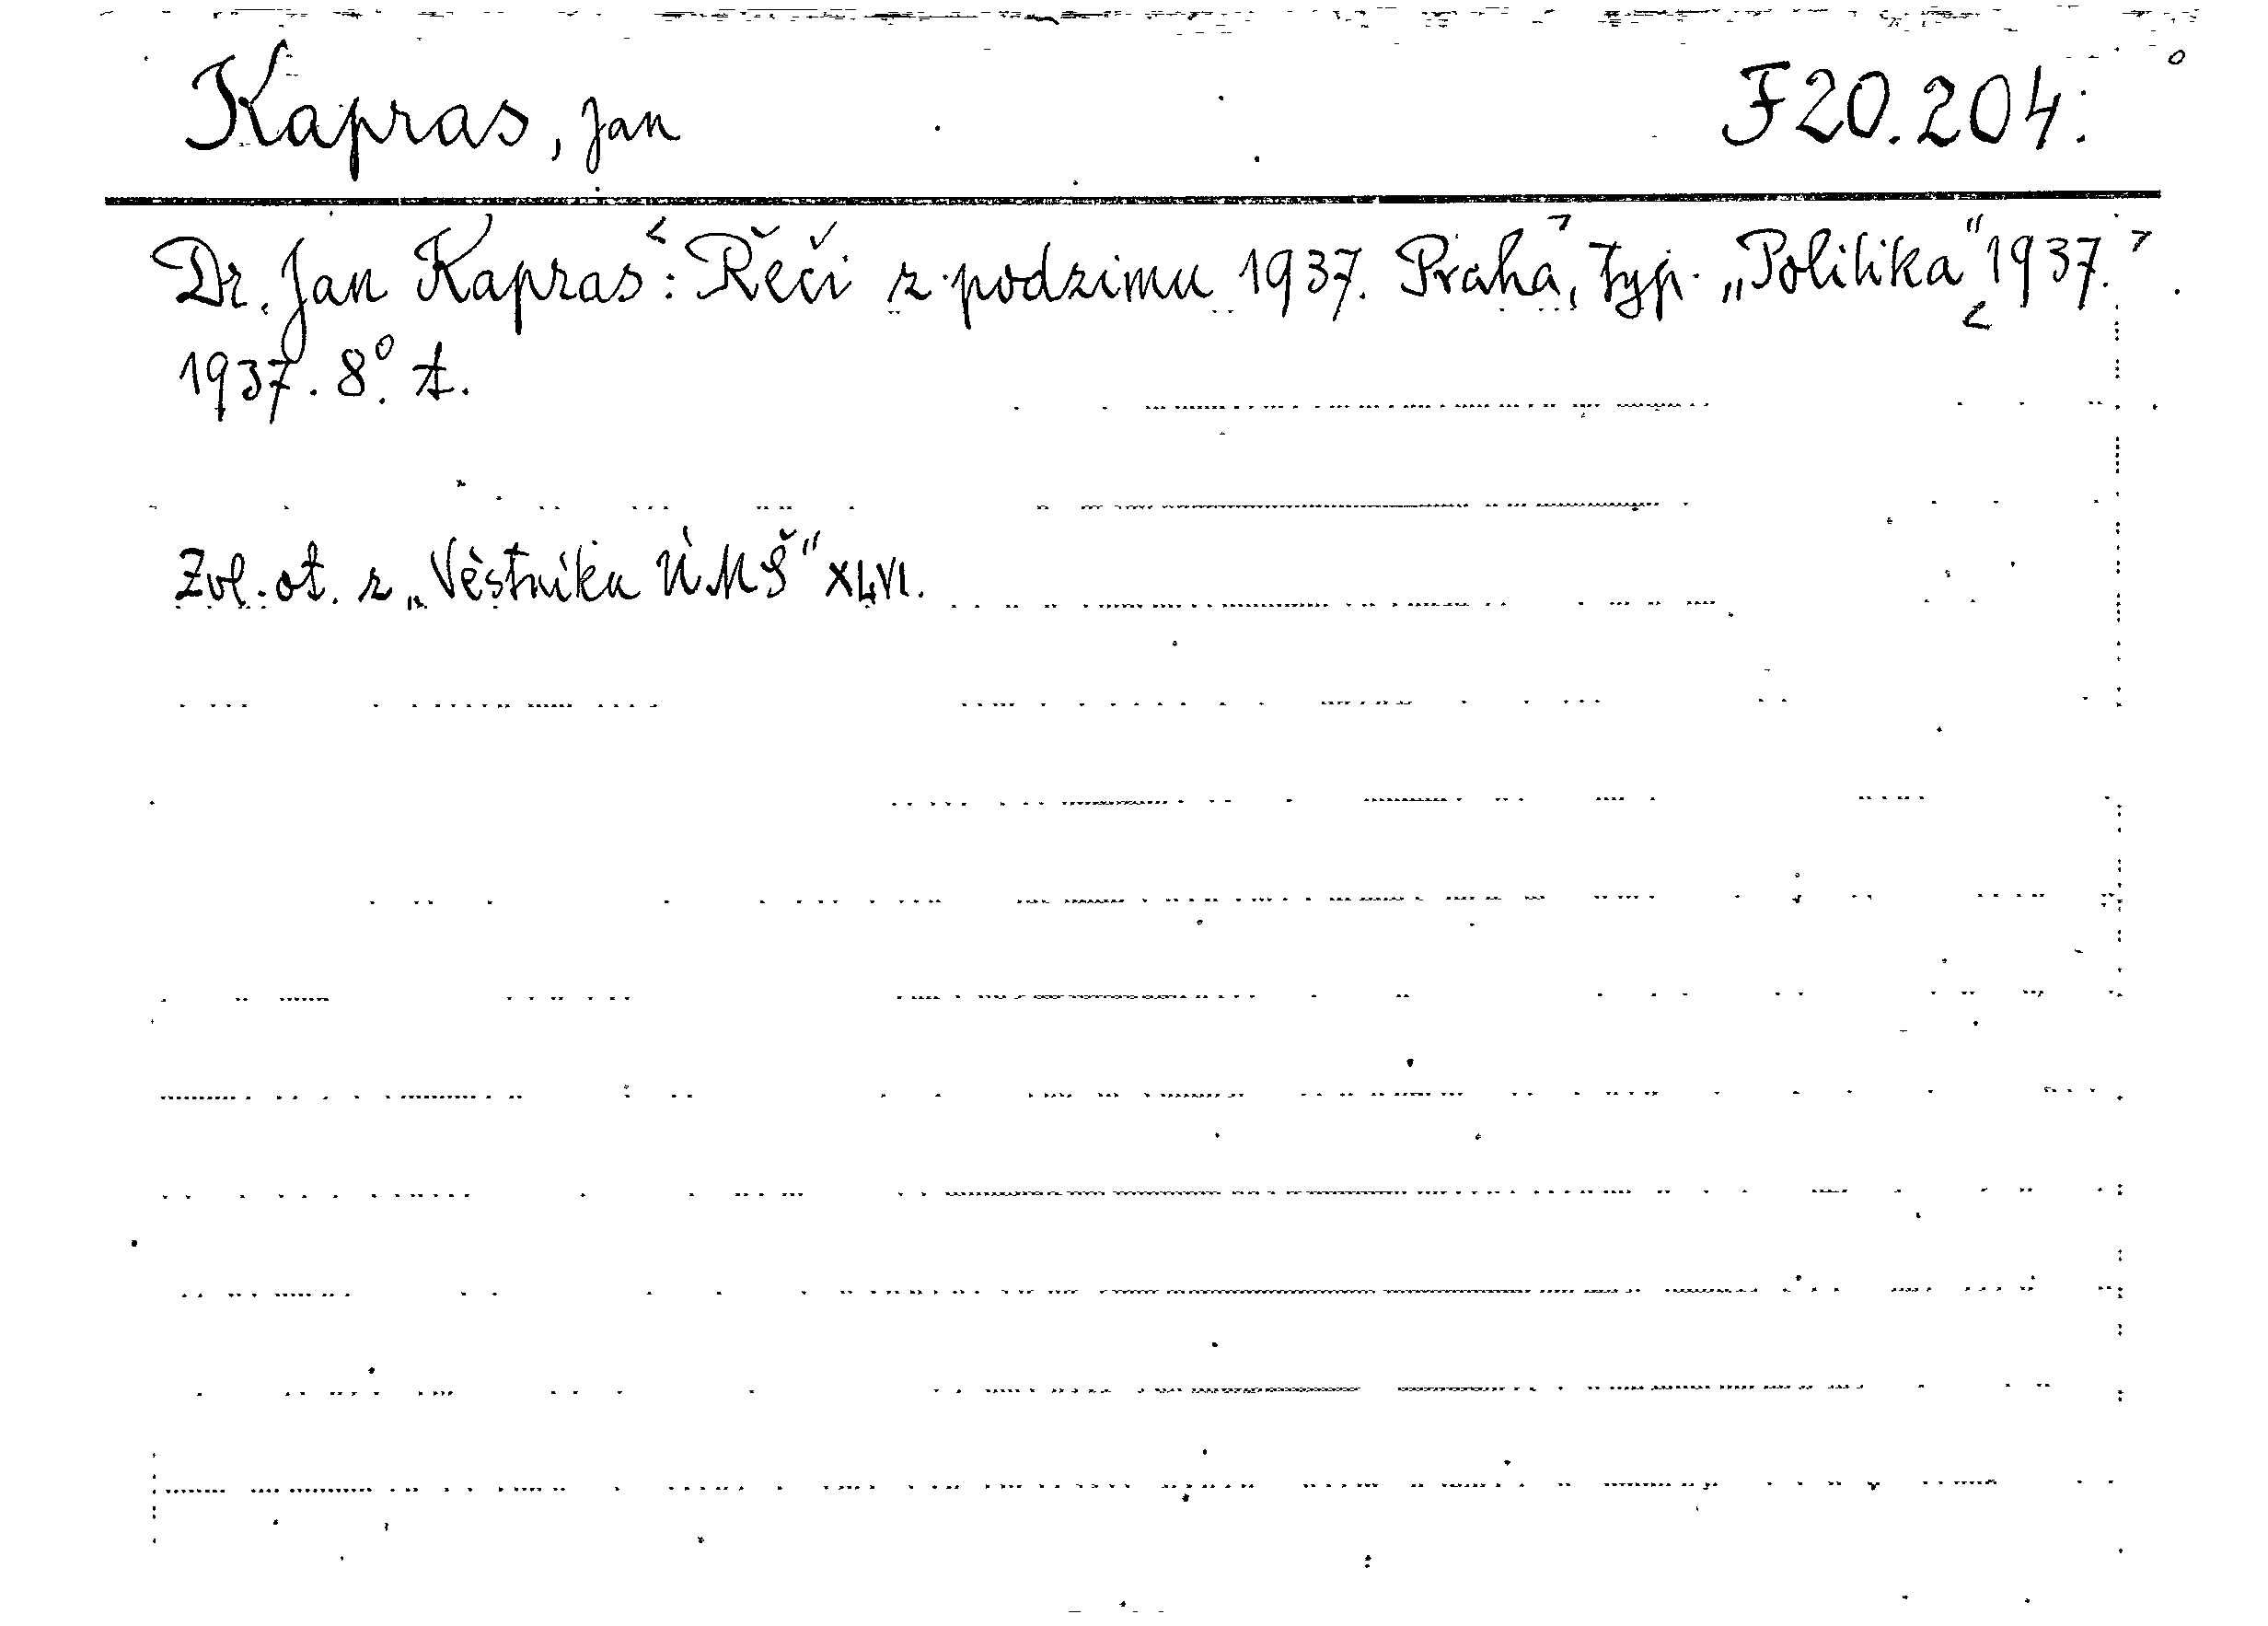 Kapras, Jan F20.204.
Dr. Jan Kapras: Řeči z podzimu 1937. Praha, typ. „Politika" 1937.
1937. 8°. t.
Zvl. ot. z „Věstníku ÚMŠ" XLVI.